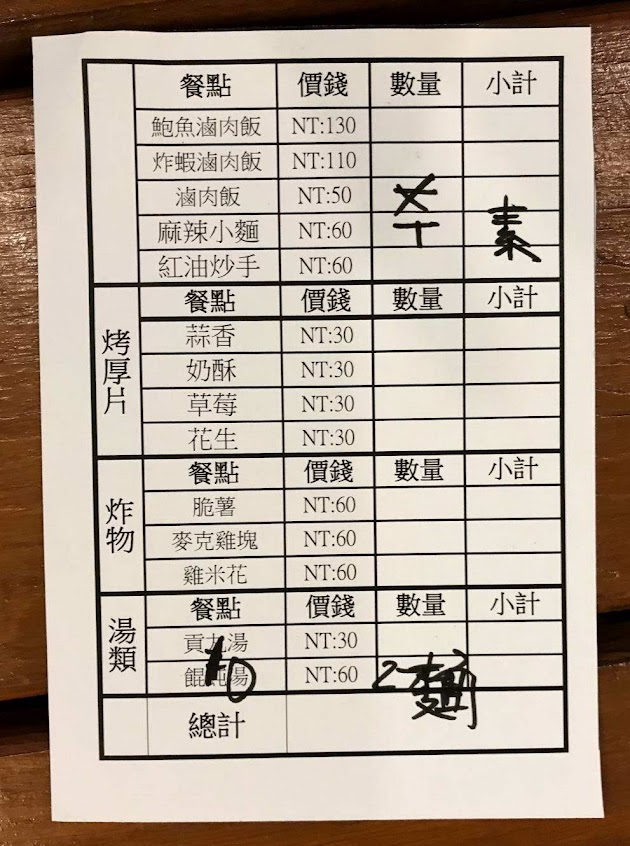 餐點 價錢 數量 小計
鮑魚滷肉飯 NT:130
炸蝦滷肉飯 NT:110
滷肉飯 NT:50
麻辣小麵 NT:60 T 素
紅油炒手 NT:60
烤厚片
餐點 價錢 數量 小計
蒜香 NT:30
奶酥 NT:30
草莓 NT:30
花生 NT:30
炸物
餐點 價錢 數量 小計
脆薯 NT:60
麥克雞塊 NT:60
雞米花 NT:60
湯類
餐點 價錢 數量 小計
貢丸湯 NT:30
餛飩湯 NT:60 2 麵
總計